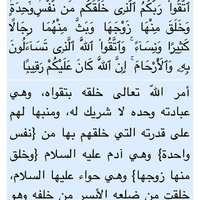 ٱتَّقُوا۟ رَبَّكُمُ ٱلَّذِى خَلَقَكُم مِّن نَّفْسٍۢ وَٰحِدَةٍۢ
وَخَلَقَ مِنْهَا زَوْجَهَا وَبَثَّ مِنْهُمَا رِجَالًۭا
كَثِيرًۭا وَنِسَآءًۭ ۚ وَٱتَّقُوا۟ ٱللَّهَ ٱلَّذِى تَسَآءَلُونَ
بِهِۦ وَٱلْأَرْحَامَ ۚ إِنَّ ٱللَّهَ كَانَ عَلَيْكُمْ رَقِيبًۭا
أمر الله تعالى خلقه بتقواه، وهي
عبادته وحده لا شريك له، ومنبها لهم
على قدرته التي خلقهم بها من {نفس
واحدة} وهي آدم عليه السلام {وخلق
منها زوجها} وهي حواء عليها السلام،
خلقت من ضلعه الأيسر من خلفه وهو